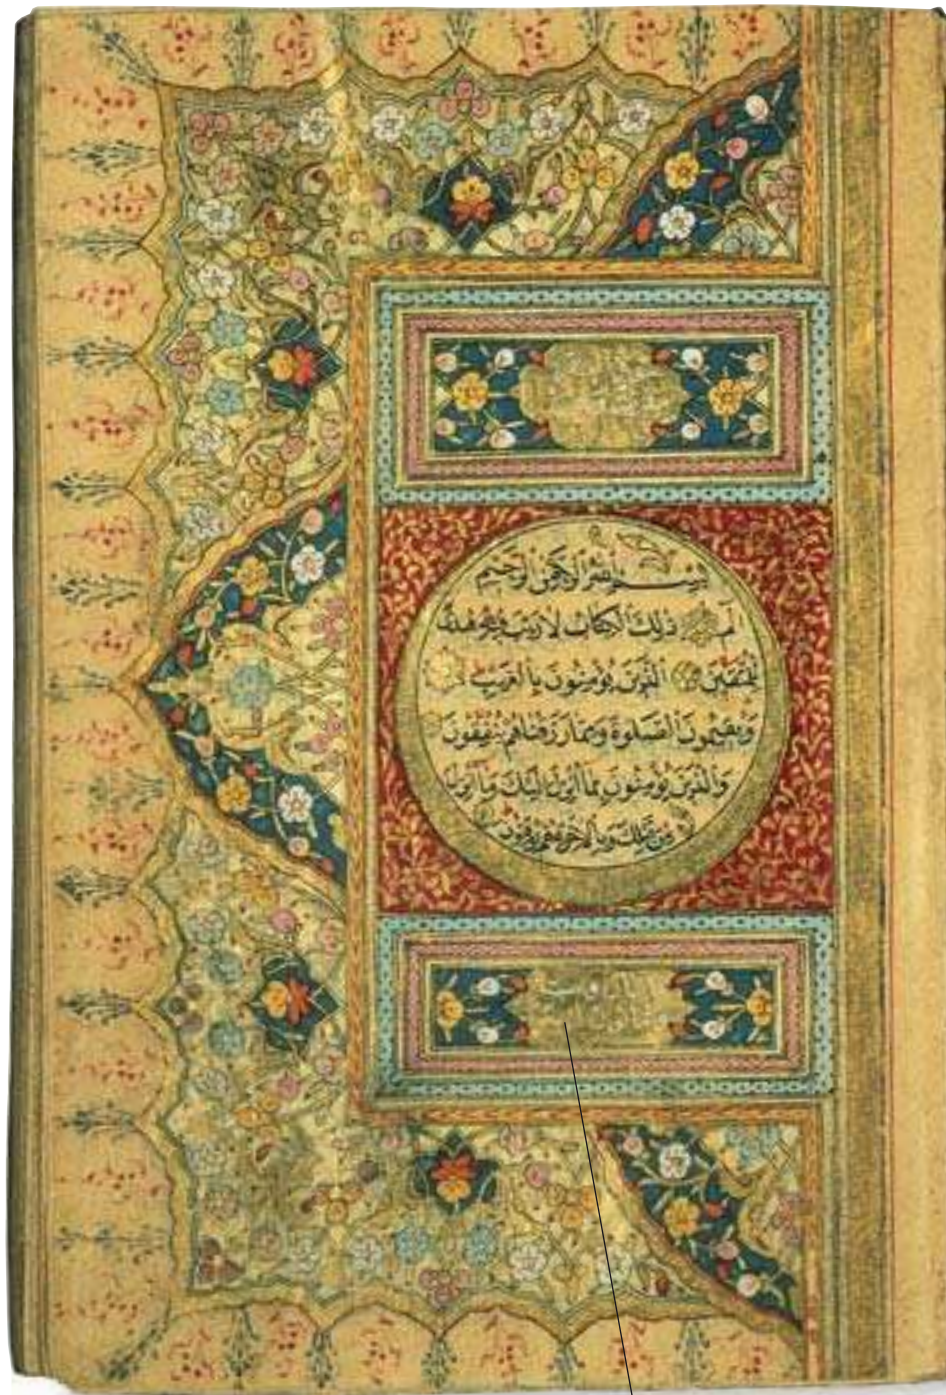 بسم الله الرحمن الرحيم
الم ذلك الكتاب لا ريب فيه هدى
للمتقين الذين يؤمنون بالغيب
ويقيمون الصلوة ومما رزقناهم ينفقون
والذين يؤمنون بما انزل اليك وما انزل
من قبلك وبالآخرة هم يوقنون